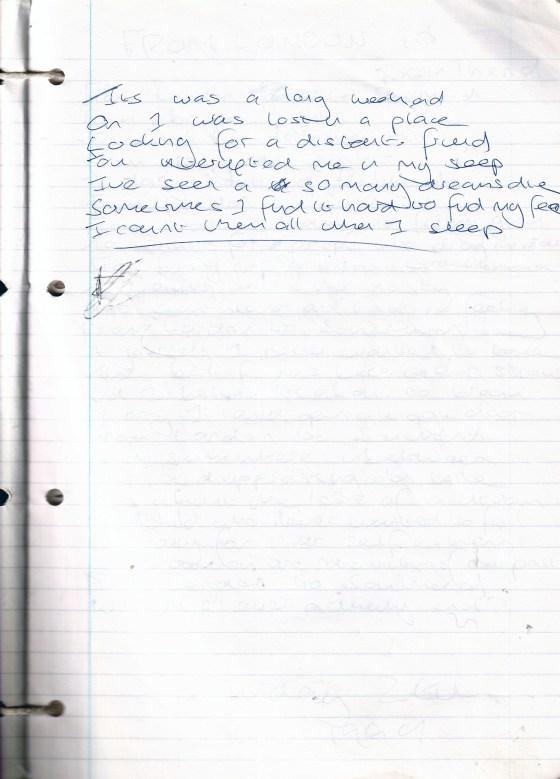 Its was a long weekend
On I was lost in a place
Looking for a distant friend
You interrupted me in my sleep
I've seen a so many dreams die
Sometimes I find it hard to find my fee
I count them all when I sleep